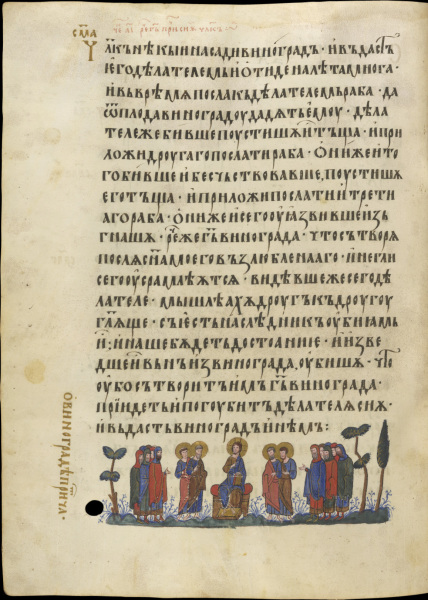 ѱл҃къ нѣкыи насади виноградъ · и въдастъ
его дѣлателемь и отиде на лѣта многа ·
и въ врѣмѧ посла къ дѣлателемь раба · да
ѿ плода виноградоу дадѧть емоу · дѣла
теле же бивше поустишѫ и тъща · и при
ложи дроугаго послати раба · они же и то
го бивше и бесчьствовавше, поустишѫ
его тъща · и приложи послати и трети
аго раба · они же и сего оуꙗзвивше изъ
гнашѫ · рече же г҃ъ винограда · что сътворѫ
послѫ сн҃а моего възлюбленааго · негли
сего оусрамлѣѫтсѧ · видѣвше же сего дѣ
лателе · мышлѣахѫ дроугъ къ дроугоу
гл҃ѫще · сь естъ наслѣдникъ оубиимы
и · и наше бѫдетъ достоание · и изве
дше и вънъ из винограда, оубишѫ · что
оубо сътворитъ имъ г҃ъ винограда ·
прїидетъ и погоубитъ дѣлателѧ сиѫ ·
и въдасть виноградъ инѣмъ :
о виноградѣ притча ·